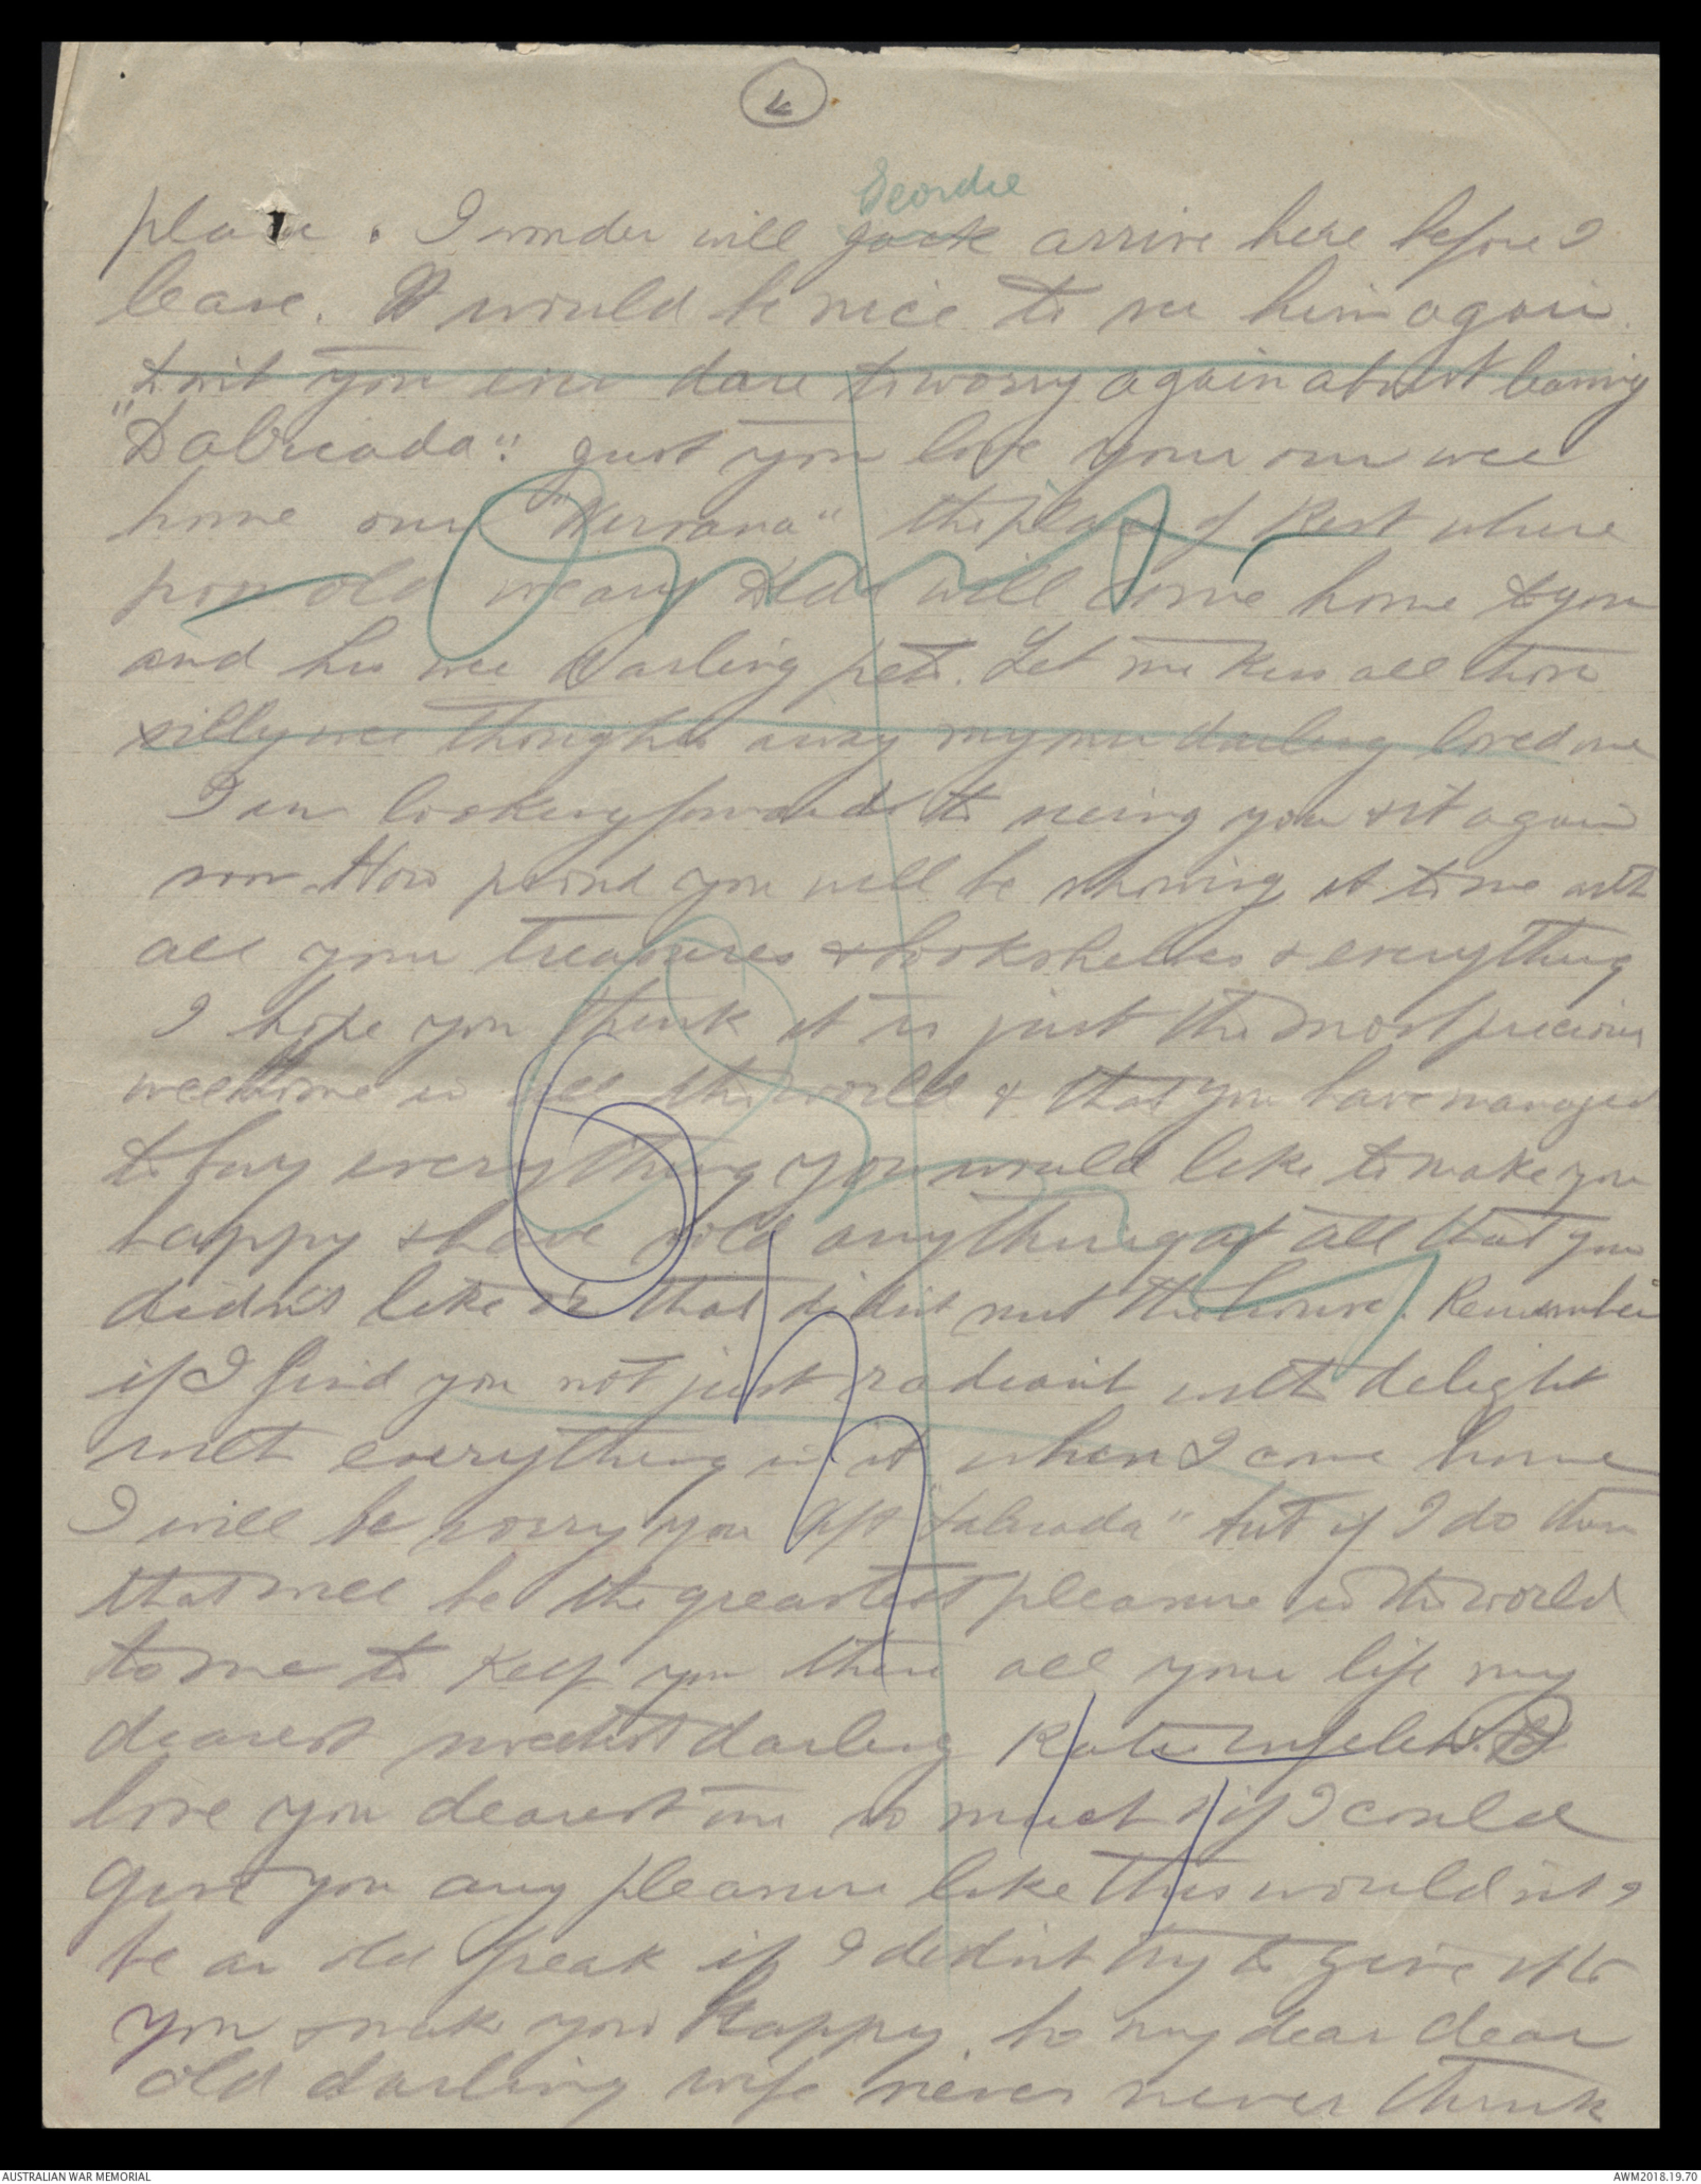 4
Geordie
place. I wonder will Jack arrive here before I
leave. It would be nice to see him again.
Don't you ever dare to worry again about leaving
"Dalveada". Just you love your own wee
home our "Kirrana" the place of Rest where
poor old weary Dad will come home to you
and his wee darling pets. Let me kiss all those
silly wee thoughts away my own darling loved one
I am looking forward to seeing you & it again
soon. How proud you will be showing it to me with
all your treasures & bookshelves & everything
I hope you think it is just the most precious
wee home in all the world & that you have managed
to buy everything you would like to make you
happy & have sold anything at all that you
didn't like or that didn't suit the house. Remember
if I find you not just radiant with delight
with everything in it when I come home
I will be sorry you left "Dalveada" but if I do then
that will be the greatest pleasure in the world
to me to keep you there all your life my
dearest sweetest darling Kate wifelet. I
love you dearest one so much & if I could
give you any pleasure like this wouldn't I
be an old freak if I didn't try to give it to
you & make you happy. No my dear dear
old darling wife never never think
AUSTRALIAN WAR MEMORIAL
AWM2018.19.70